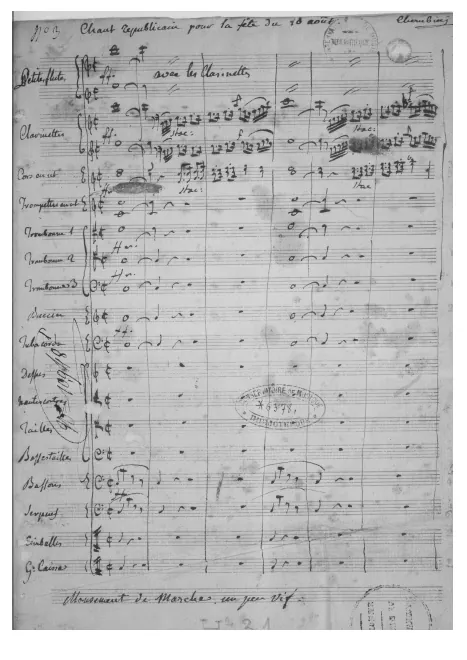 Nº 3 Chant republicain pour la fête du 10 août. Cherubini
Petite flûte ff. avec les Clarinettes
Clarinettes ff. Stac: f Stac: f
Cors en ut Stac: Stac
Trompettes en ut
Trombonne 1 ff
Trombonne 2 ff
Trombonne 3 ff
Buccin
Tuba corda ff
Dessus
hautes contres
Tailles
Basse taille
Bassons
Serpens
Cimballes
Gr. Caisse
CONSERVATOIRE DE MUSIQUE
BIBLIOTHEQUE
Mouvement de Marche, un peu vif.